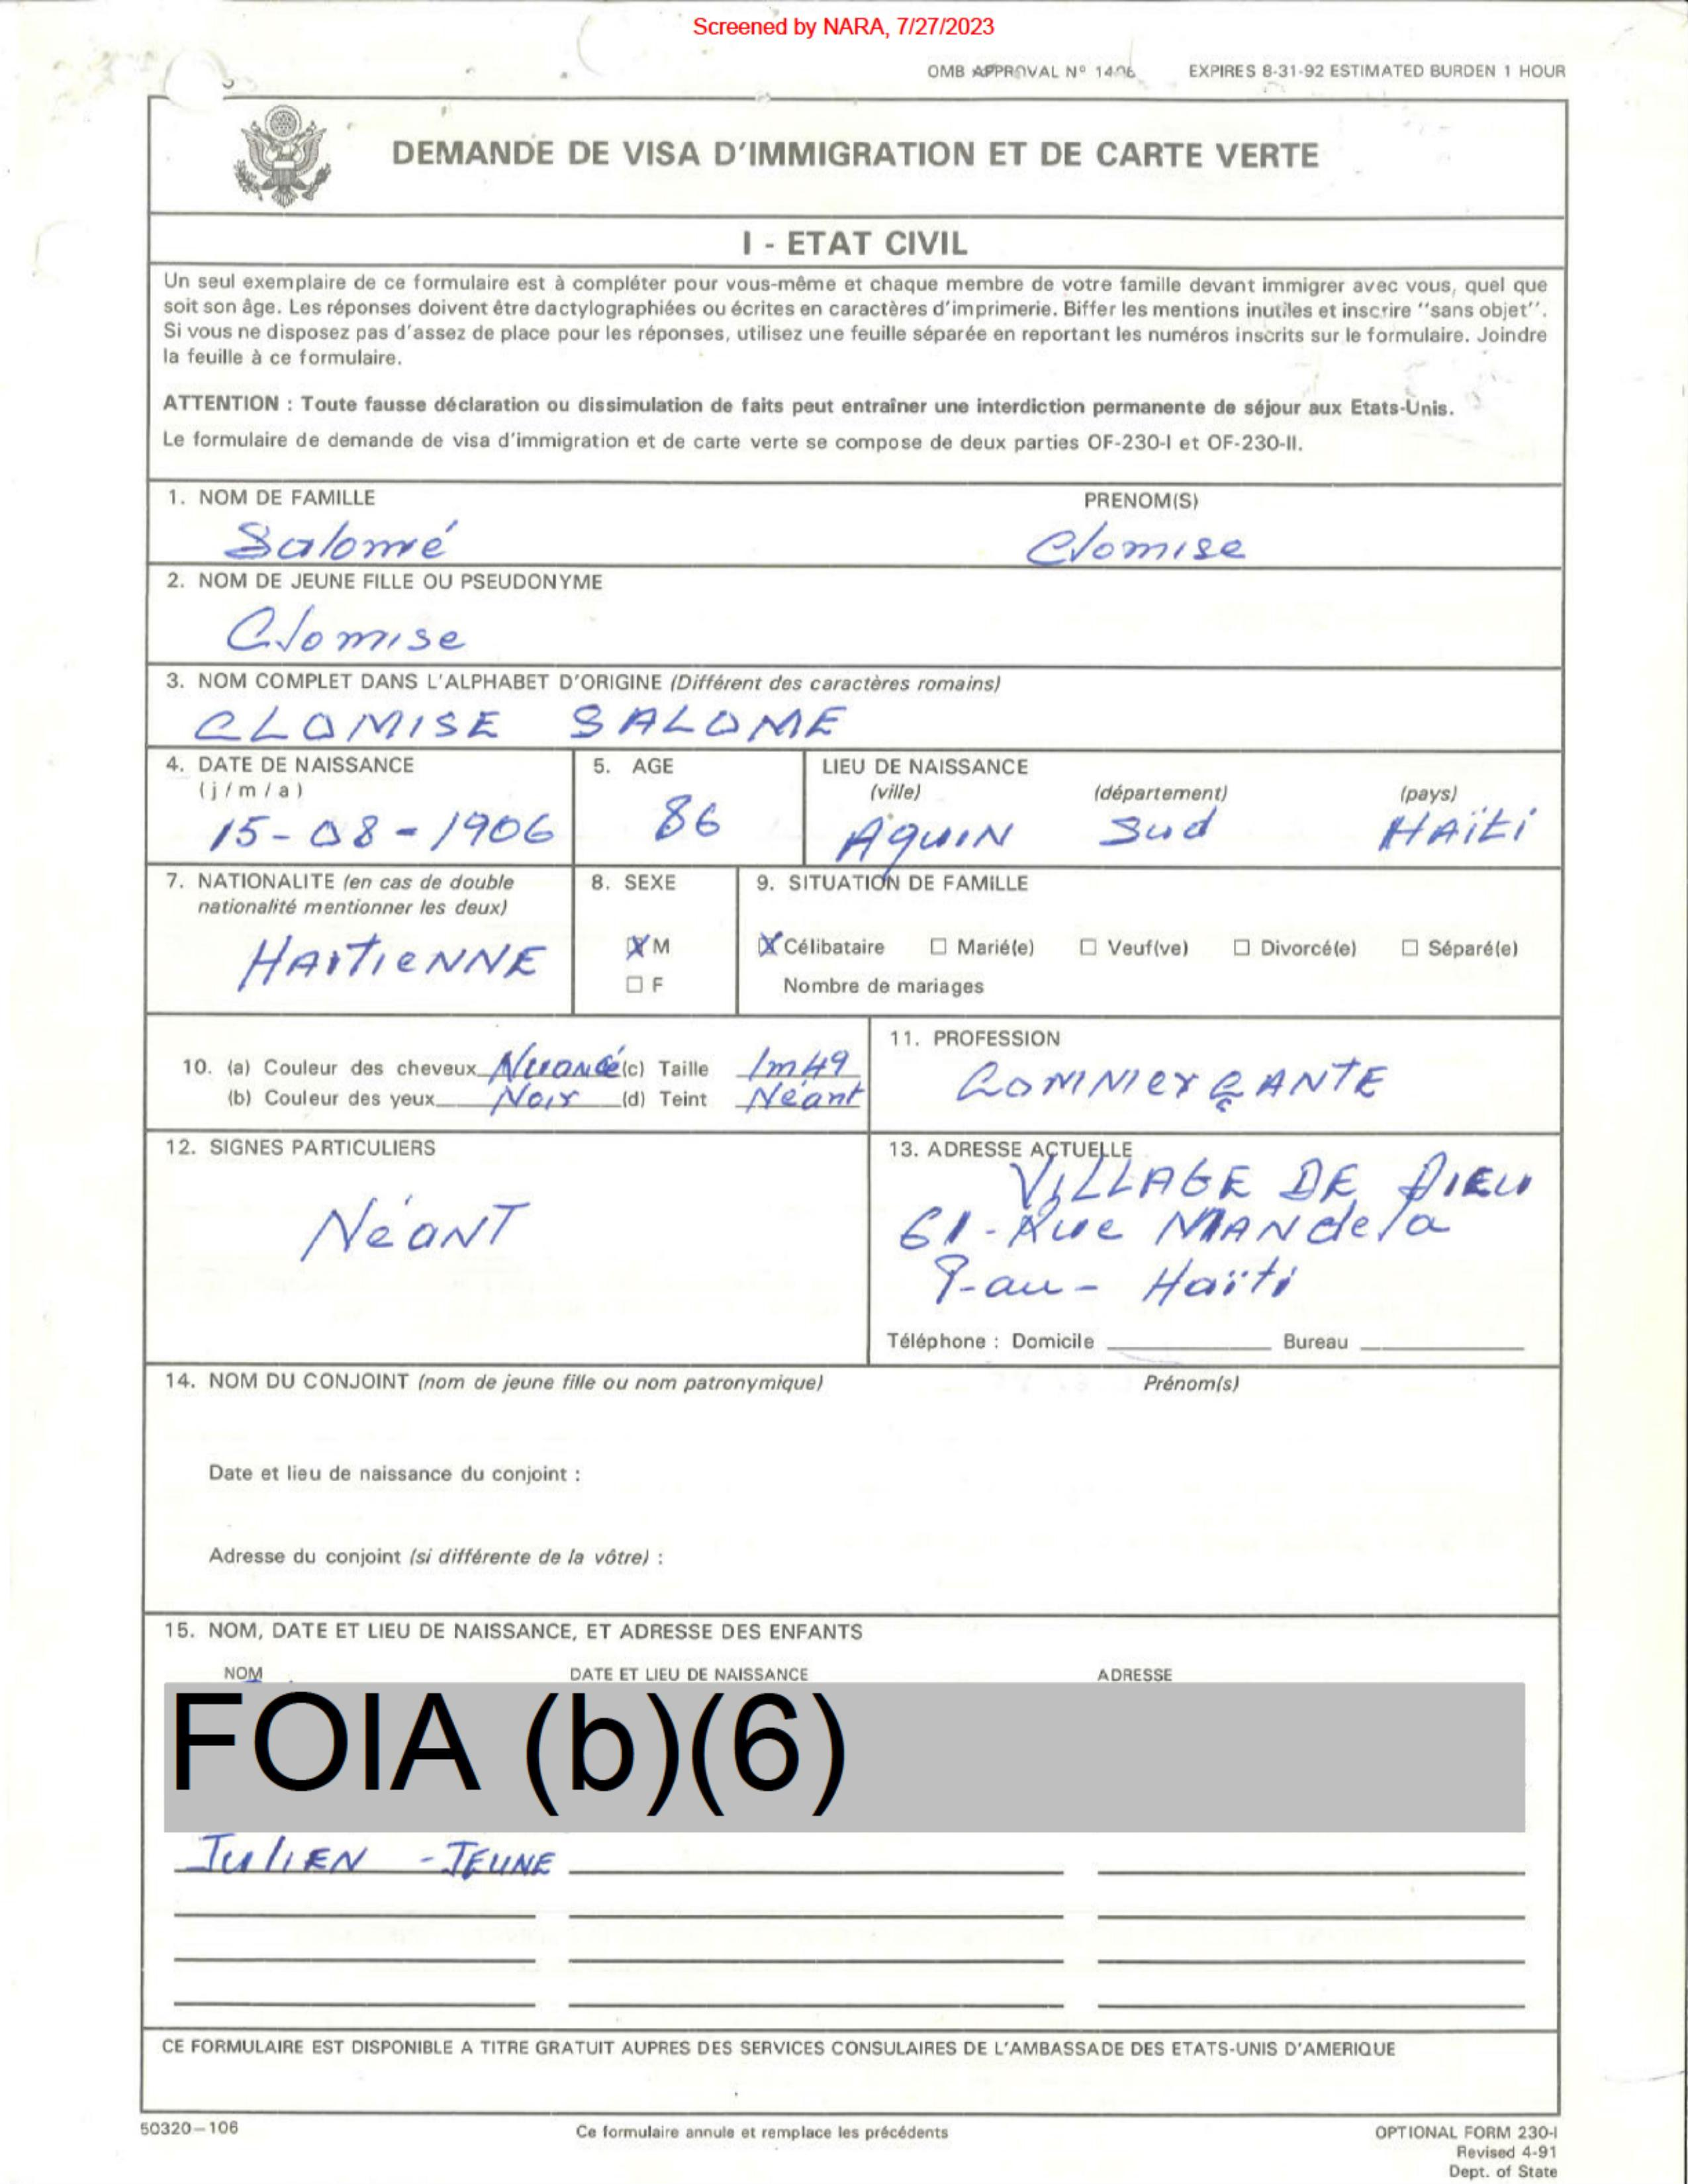 Screened by NARA, 7/27/2023
OMB APPROVAL Nº 1406 EXPIRES 8-31-92 ESTIMATED BURDEN 1 HOUR
DEMANDE DE VISA D'IMMIGRATION ET DE CARTE VERTE
I - ETAT CIVIL
Un seul exemplaire de ce formulaire est à compléter pour vous-même et chaque membre de votre famille devant immigrer avec vous, quel que
soit son âge. Les réponses doivent être dactylographiées ou écrites en caractères d'imprimerie. Biffer les mentions inutiles et inscrire "sans objet".
Si vous ne disposez pas d'assez de place pour les réponses, utilisez une feuille séparée en reportant les numéros inscrits sur le formulaire. Joindre
la feuille à ce formulaire.
ATTENTION : Toute fausse déclaration ou dissimulation de faits peut entraîner une interdiction permanente de séjour aux Etats-Unis.
Le formulaire de demande de visa d'immigration et de carte verte se compose de deux parties OF-230-I et OF-230-II.
1. NOM DE FAMILLE PRENOM(S)
Salomé Clomise
2. NOM DE JEUNE FILLE OU PSEUDONYME
Clomise
3. NOM COMPLET DANS L'ALPHABET D'ORIGINE (Différent des caractères romains)
CLOMISE SALOME
4. DATE DE NAISSANCE 5. AGE LIEU DE NAISSANCE
(j/m/a) (ville) (département) (pays)
15-08-1906 86 AQUIN Sud HAÏti
7. NATIONALITE (en cas de double 8. SEXE 9. SITUATION DE FAMILLE
nationalité mentionner les deux)
HAITIENNE X M X Célibataire □ Marié(e) □ Veuf(ve) □ Divorcé(e) □ Séparé(e)
□ F Nombre de mariages
10. (a) Couleur des cheveux Nuancé (c) Taille 1m49
(b) Couleur des yeux Noir (d) Teint Néant
11. PROFESSION
COMMERÇANTE
12. SIGNES PARTICULIERS
NéANT
13. ADRESSE ACTUELLE
VILLAGE DE DIEU
61-Rue MANdela
P-au- Haïti
Téléphone : Domicile Bureau
14. NOM DU CONJOINT (nom de jeune fille ou nom patronymique) Prénom(s)
Date et lieu de naissance du conjoint :
Adresse du conjoint (si différente de la vôtre) :
15. NOM, DATE ET LIEU DE NAISSANCE, ET ADRESSE DES ENFANTS
NOM DATE ET LIEU DE NAISSANCE ADRESSE
FOIA (b)(6)
JuliEN - JEUNE
CE FORMULAIRE EST DISPONIBLE A TITRE GRATUIT AUPRES DES SERVICES CONSULAIRES DE L'AMBASSADE DES ETATS-UNIS D'AMERIQUE
50320-106 Ce formulaire annule et remplace les précédents OPTIONAL FORM 230-I
Revised 4-91
Dept. of State